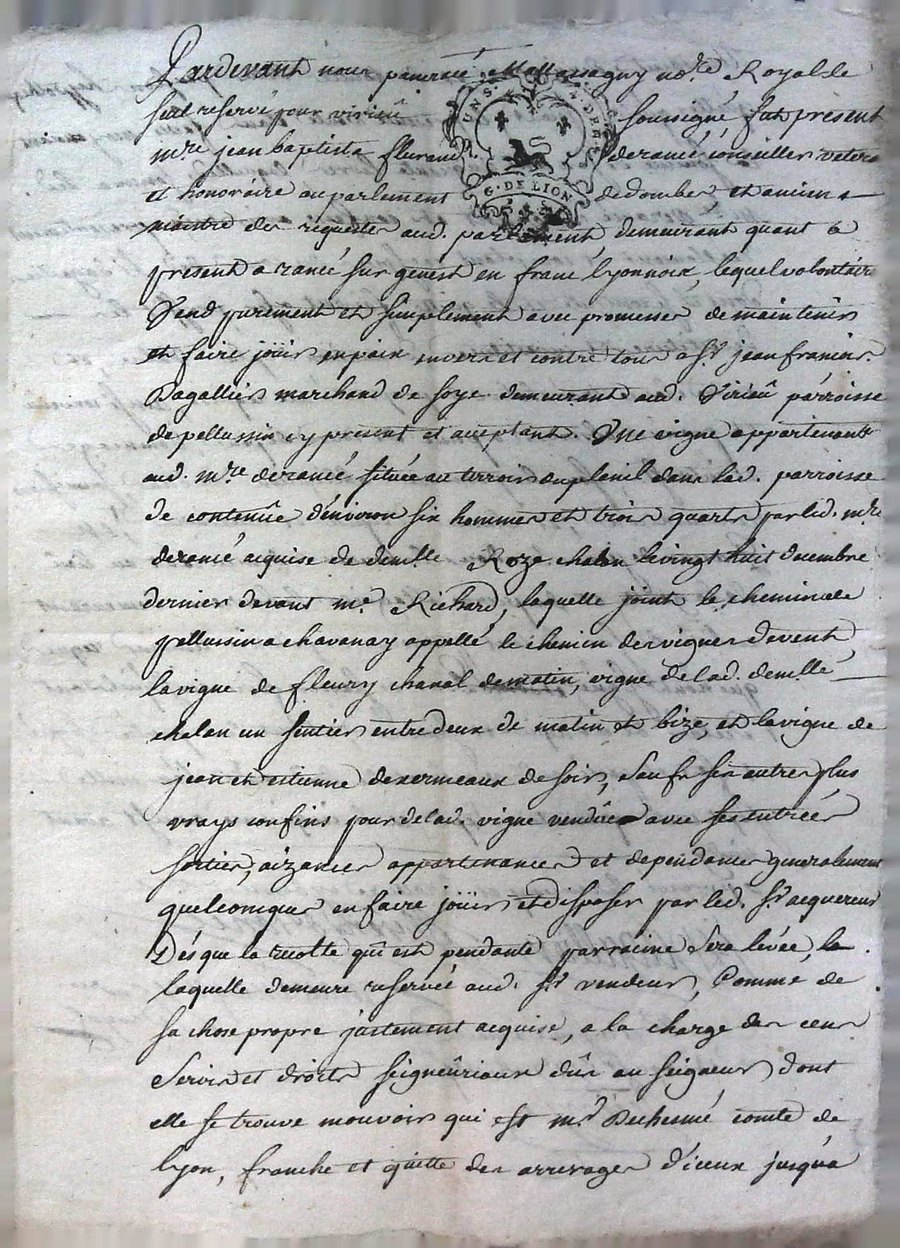 Pardevant nous pancracé Mottassagny no.re Royal le
seul reservé pour virieû soussigné, fut present
UN S. 4. DEN.
G. DE LION
m.re jean baptiste fleurand deranié conseiller vetera
et honoraire au parlement de dombes et ancien
maitre des requestes aud. parlement, demeurant quant a
present a rancé sur genest en franc lyonnoix, lequel volontaire
Vend purement et simplement avec promesses de maintenir
et faire joüir en paix envers et contre tous a S.r jean francois
Dagallier marchand de soye demeurant aud. Virieû parroisse
de pellussin cy present et acceptant. Une vigne appartenante
aud. m.re deranié située au terroir du pleuil dans lad. parroisse
de contenûe d'environ six hommes et trois quarts par led. m.re
deranié acquise de dem.lle Roze chalon le vingt huit decembre
dernier devant m.e Richard, laquelle joint le chemin de
pellussin a chavanay appellé le chemin des vignes de vent,
la vigne de fleury chanal de matin, vigne de lad. dem.lle
chalon un sentier entre deux de matin et bize, et la vigne de
jean et estienne desermeaux de soir, sauf ses autres plus
vrays confins pour de lad. vigne vendûe avec ses entrées
sorties, aizances appartenances et dependances generalement
quelconques en faire joüir et disposer par led. S.r acquereur
Dés que la recolte qui est pendante par racine sera levée, la
laquelle demeure reservée aud. S.r vendeur, Comme de
sa chose propre justement acquise, a la charge des cens
servis et droits seigneûriaux dûs au seigneur dont
elle se trouve mouvoir qui est m.r Duchemé comte de
lyon, franche et quitte des arrerages d'iceux jusqu'a